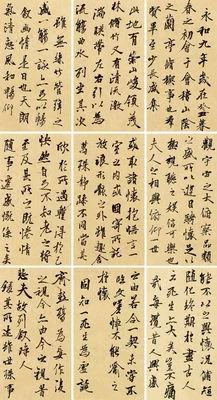 永和九年歲在癸丑暮
春之初會于會稽山陰
之蘭亭脩稧事也羣
賢畢至少長咸集
此地有崇山峻領茂
林脩竹又有清流激
湍暎帶左右引以為
流觴曲水列坐其次
雖無絲竹管弦之
盛一觴一詠亦足以暢
敘幽情是日也天朗
氣清惠風和暢仰
觀宇宙之大俯察品類之
盛所以遊目騁懷足以極
視聽之娛信可樂也
夫人之相與俯仰一世
或取諸懷抱悟言一
室之內或因寄所託
放浪形骸之外雖趣舍
萬殊靜躁不同當其
欣於所遇蹔得於己
快然自足不知老之將
至及其所之既惓情
隨事遷感慨係之矣
能不以之興懷況脩短
隨化終期於盡古人
云死生亦大矣豈不痛
哉每攬昔人興感
之由若合一契未甞不
臨文嗟悼不能喻之於
懷
固知一死生為虛誕
齊彭殤為妄作後
之視今亦由今之視昔
悲夫故列敘時人
錄其所述雖世殊事